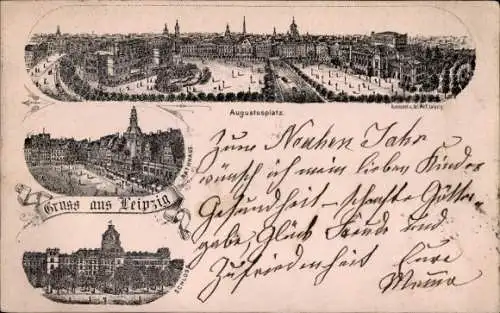 Augustusplatz.
RATHHAUS.
Gruss aus Leipzig
SCHLOSS
Zum Neuhen Jahr
wünsch ich meim lieben Kinder
Gesundheit – schönste Götter-
gabe, Glück Freude und
Zufriedenheit Eure
Mama